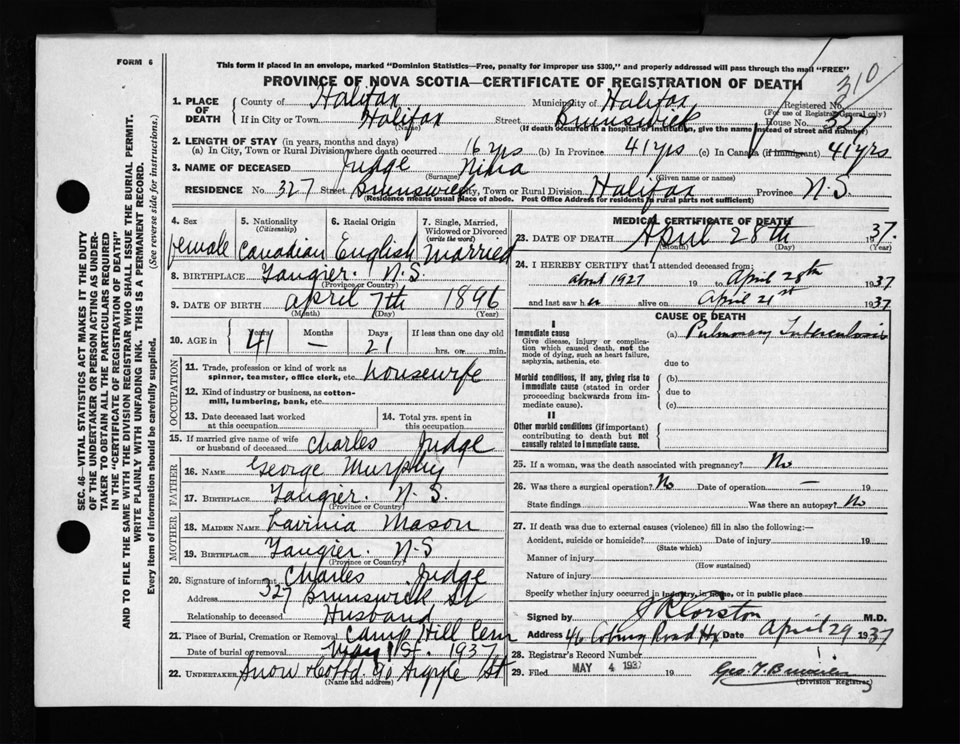 310
FORM 6
This form if placed in an envelope, marked "Dominion Statistics—Free, penalty for improper use $300," and properly addressed will pass through the mail "FREE"
PROVINCE OF NOVA SCOTIA—CERTIFICATE OF REGISTRATION OF DEATH
SEC. 46—VITAL STATISTICS ACT MAKES IT THE DUTY
OF THE UNDERTAKER OR PERSON ACTING AS UNDER-
TAKER TO OBTAIN ALL THE PARTICULARS REQUIRED
IN THE "CERTIFICATE OF REGISTRATION OF DEATH"
AND TO FILE THE SAME WITH THE DIVISION REGISTRAR WHO SHALL ISSUE THE BURIAL PERMIT.
WRITE PLAINLY WITH UNFADING INK. THIS IS A PERMANENT RECORD.
Every item of information should be carefully supplied. (See reverse side for instructions.)
1. PLACE OF DEATH County of Halifax Municipality of Halifax Registered No.
(For use of Registrar General only)
If in City or Town Halifax Street Brunswick House No. 327
(Name) (If death occurred in a hospital or institution, give the name instead of street and number)
2. LENGTH OF STAY (in years, months and days)
(a) In City, Town or Rural Division where death occurred 16 yrs (b) In Province 41 yrs (c) In Canada (if immigrant) 41 yrs
3. NAME OF DECEASED Judge Nina
(Surname) (Given name or names)
RESIDENCE No. 327 Street Brunswick City, Town or Rural Division Halifax Province N.S.
(Residence means usual place of abode. Post Office Address for residents in rural parts not sufficient)
4. Sex 5. Nationality (Citizenship) 6. Racial Origin 7. Single, Married, Widowed or Divorced (write the word)
female Canadian English married
8. BIRTHPLACE Tangier. N.S.
(Province or Country)
9. DATE OF BIRTH April 7th 1896
(Month) (Day) (Year)
10. AGE in Years Months Days If less than one day old
41 — 21 hrs. or min.
OCCUPATION
11. Trade, profession or kind of work as spinner, teamster, office clerk, etc. housewife
12. Kind of industry or business, as cotton-mill, lumbering, bank, etc.
13. Date deceased last worked at this occupation 14. Total yrs. spent in this occupation
15. If married give name of wife or husband of deceased Charles Judge
FATHER
16. NAME George Murphy
17. BIRTHPLACE Tangier. N.S.
(Province or Country)
MOTHER
18. MAIDEN NAME Lavinia Mason
19. BIRTHPLACE Tangier. N.S
(Province or Country)
20. Signature of informant Charles Judge
Address 327 Brunswick St
Relationship to deceased Husband
21. Place of Burial, Cremation or Removal Camp Hill Cem
Date of burial or removal May 1st. 1937
22. UNDERTAKER Snow & Co Ltd. 90 Argyle St
(Name and address)
MEDICAL CERTIFICATE OF DEATH
23. DATE OF DEATH April 28th 1937.
(Month) (Day) (Year)
24. I HEREBY CERTIFY that I attended deceased from:
about 1927 19 to April 28th 1937
and last saw her alive on April 21st 1937
CAUSE OF DEATH
I
Immediate cause (a) Pulmonary Tuberculosis
Give disease, injury or complica-
tion which caused death, not the
mode of dying, such as heart failure,
asphyxia, asthenia, etc.
due to
Morbid conditions, if any, giving rise to
immediate cause (stated in order
proceeding backwards from im-
mediate cause).
(b)
due to
(c)
II
Other morbid conditions (if important)
contributing to death but not
causally related to immediate cause.
25. If a woman, was the death associated with pregnancy? No
26. Was there a surgical operation? No Date of operation — 19
State findings Was there an autopsy? No
27. If death was due to external causes (violence) fill in also the following:—
Accident, suicide or homicide? Date of injury 19
(State which)
Manner of injury
(How sustained)
Nature of injury
Specify whether injury occurred in industry, in home, or in public place
Signed by J R Corston M.D.
Address 46 Coburg Road Hx Date April 29 1937
28. Registrar's Record Number
29. Filed MAY 4 1937 19
(Division Registrar)